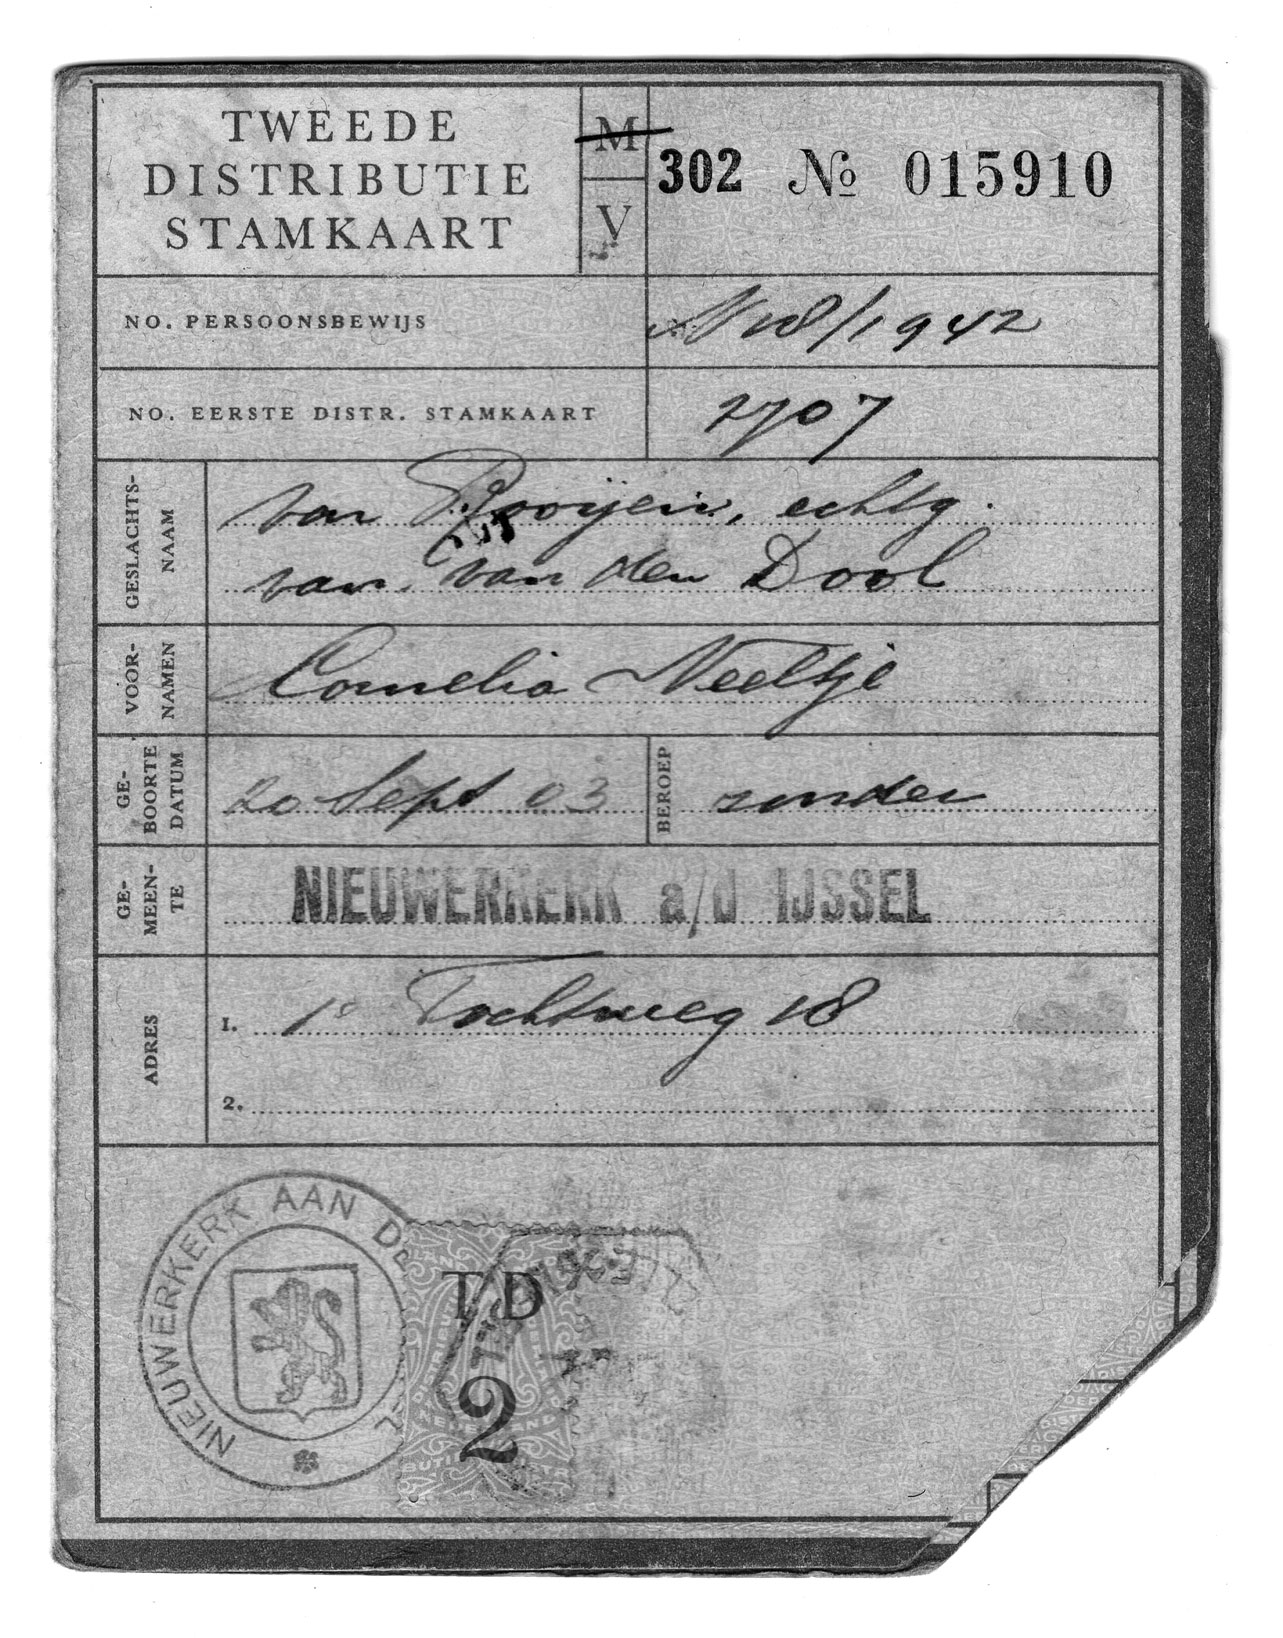 TWEEDE
DISTRIBUTIE
STAMKAART
M
V
302 № 015910
NO. PERSOONSBEWIJS
/1942
NO. EERSTE DISTR. STAMKAART
2707
GESLACHTS-
NAAM
van Rooijen, echtg.
van van den Dool
VOOR-
NAMEN
Cornelia Neeltje
GE-
BOORTE
DATUM
20 Sept 03
BEROEP
zonder
GE-
MEEN-
TE
NIEUWERKERK a/d IJSSEL
ADRES
1. 1e Tochtweg 18
2.
NIEUWERKERK AAN DE
TD
2